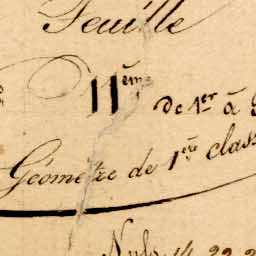 Feuille
11ème de 1er à
Géomètre de 1ère class